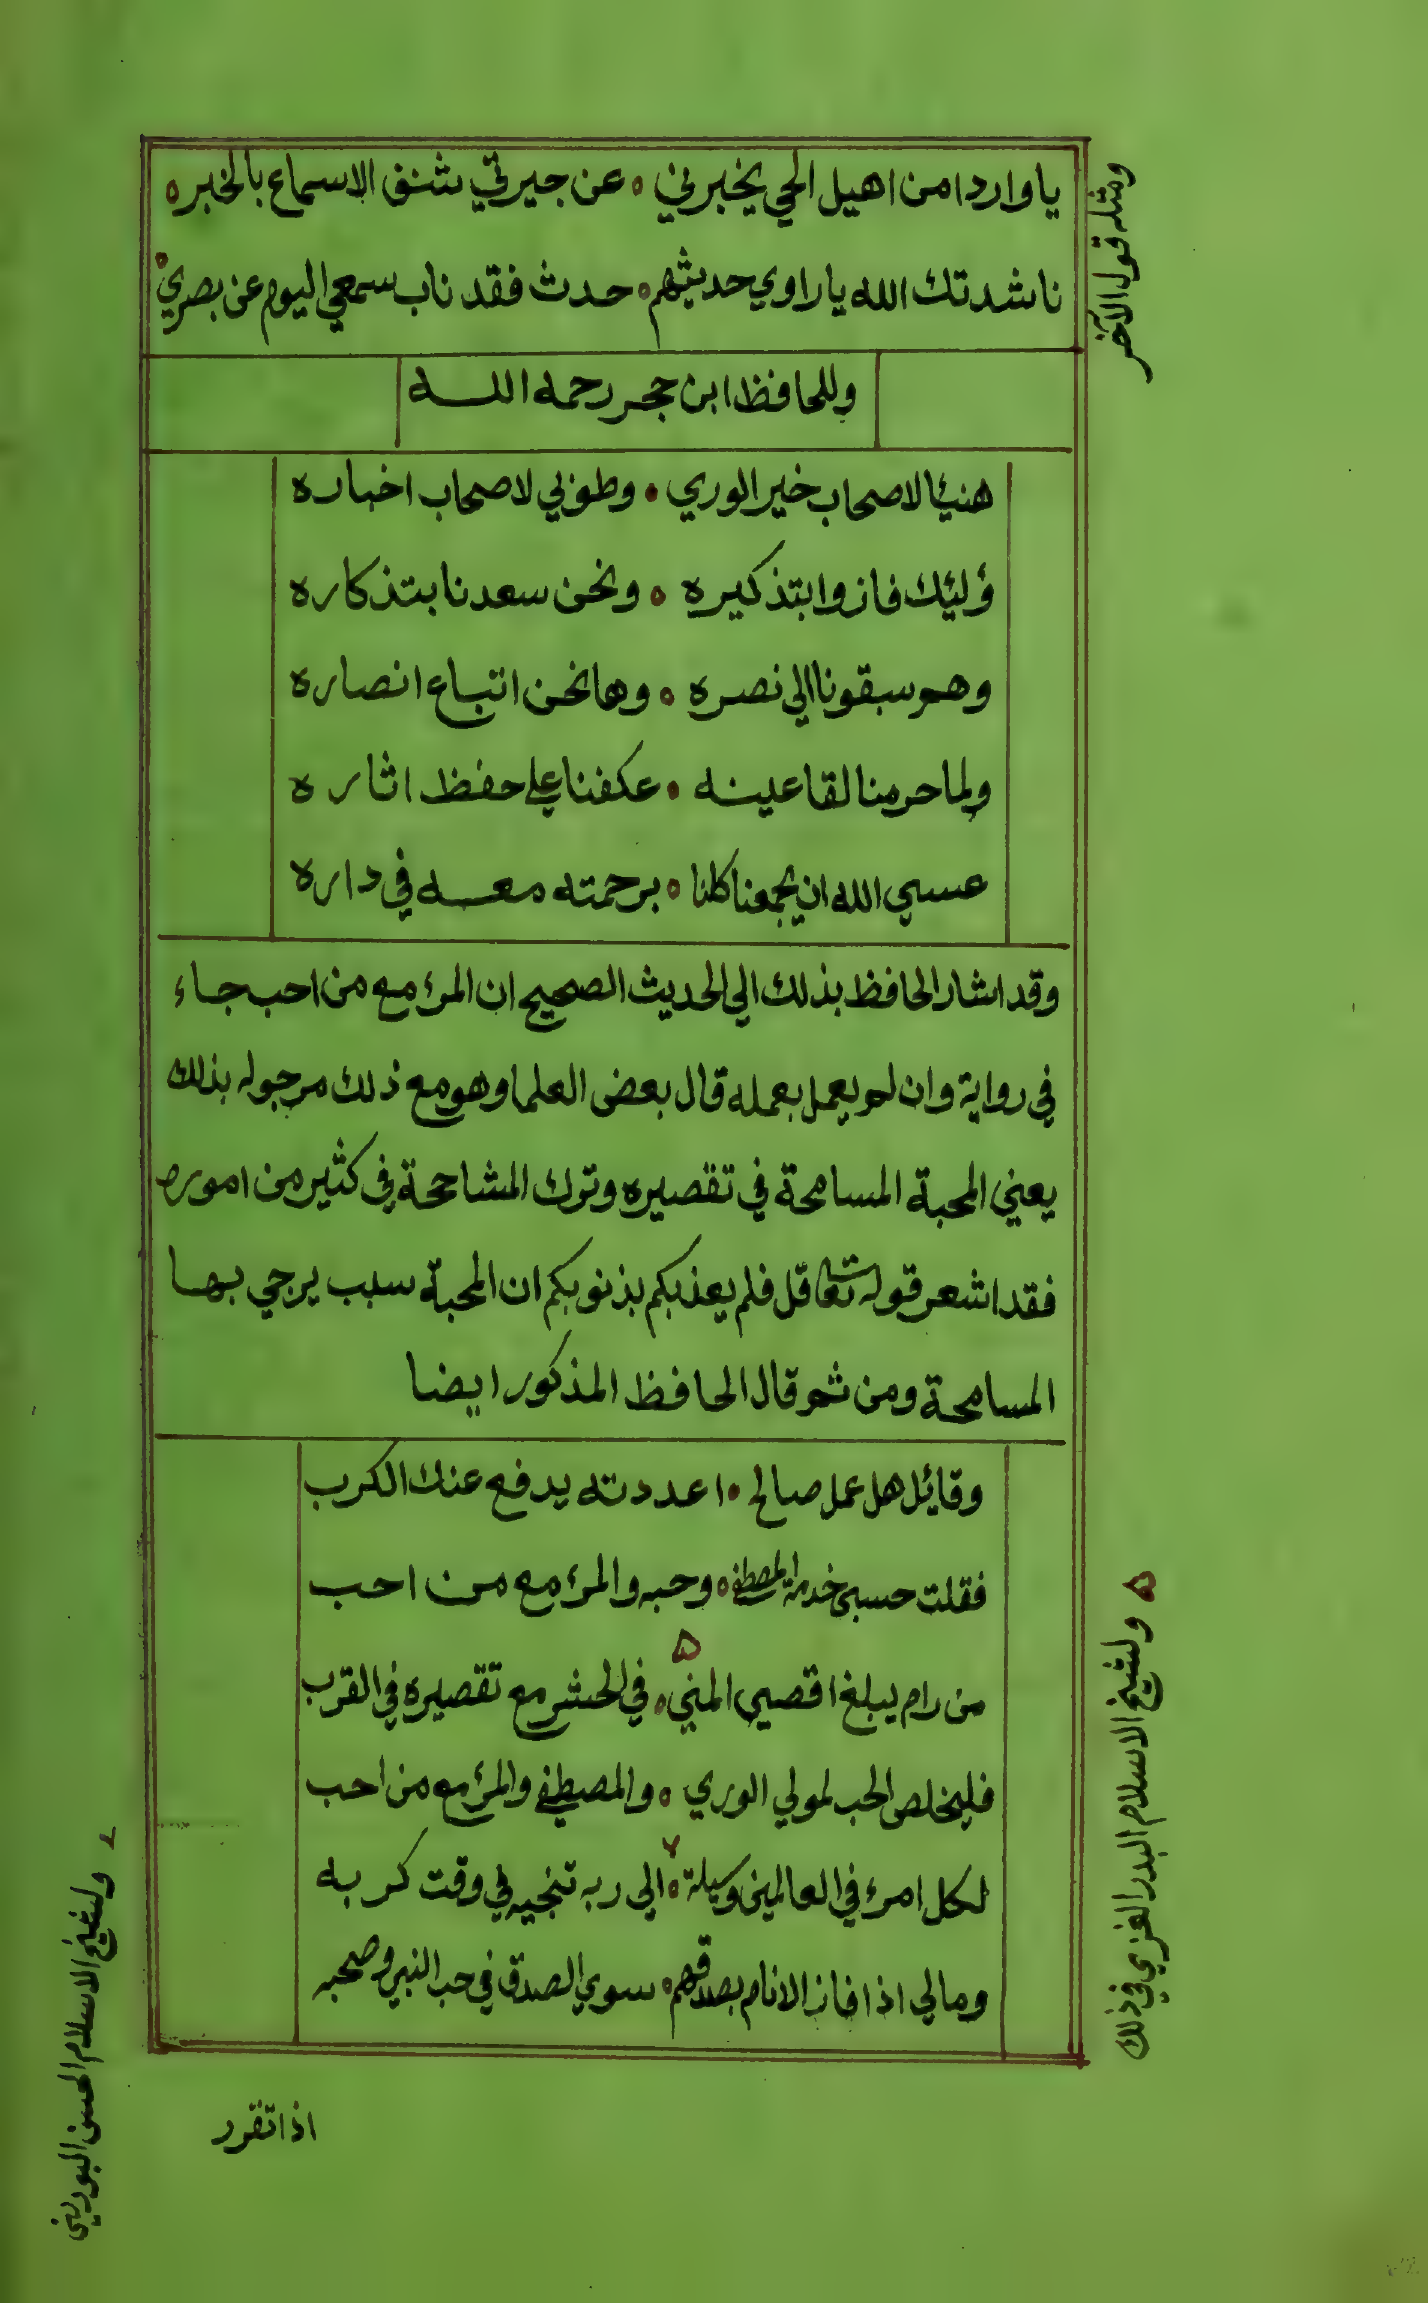 ومثله قول الآخر
ياواردا من اهيل الحي يخبرني ه عن جيرتي شنف الاسماع بالخبر ه
ناشدتك الله ياراوي حديثهم ه حدث فقد ناب سمعي اليوم عن بصري ه
وللحافظ ابن حجر رحمه الله
هنيئا لاصحاب خير الوري ه وطوبي لاصحاب اخباره
ؤليئك فازوا بتذكيره ه ونحن سعدنا بتذكاره
وهم سبقونا الي نصره ه وها نحن اتباع انصاره
ولما حرمنا لقا عينه ه عكفنا علي حفظ اثاره
عسي الله ان يجمعنا كلنا ه برحمته معه في داره
وقد اشار الحافظ بذلك الي الحديث الصحيح ان المرء مع من احب جاء
في رواية وان لم يعمل بعمله قال بعض العلما وهو مع ذلك مرجو له بذلك
يعني المحبة المسامحة في تقصيره وترك المشاححة في كثير من اموره
فقد اشعر قوله تعا قل فلم يعذبكم بذنوبكم ان المحبة سبب يرجي بها
المسامحة ومن ثم قال الحافظ المذكور ايضا
وقائل هل عمل صالح ه اعددته يدفع عنك الكرب
فقلت حسبي خدمة المصطفي ه وحبه والمرء مع من احب
ه
من رام يبلغ اقصي المني ه في الحشر مع تقصيره في القرب
فليخلص الحب لمولي الوري ه والمصطفي والمرء مع من احب
لكل امرء في العالمين وسيلة ه الي ربه تنجيه في وقت كربه
ومالي اذا فاز الانام بصدقهم ه سوي الصدق في حب النبي وصحبه
ه ولشيخ الاسلام البدر الغزي في ذلك
ولشيخ الاسلام الحسن البوريني
اذا تقرر